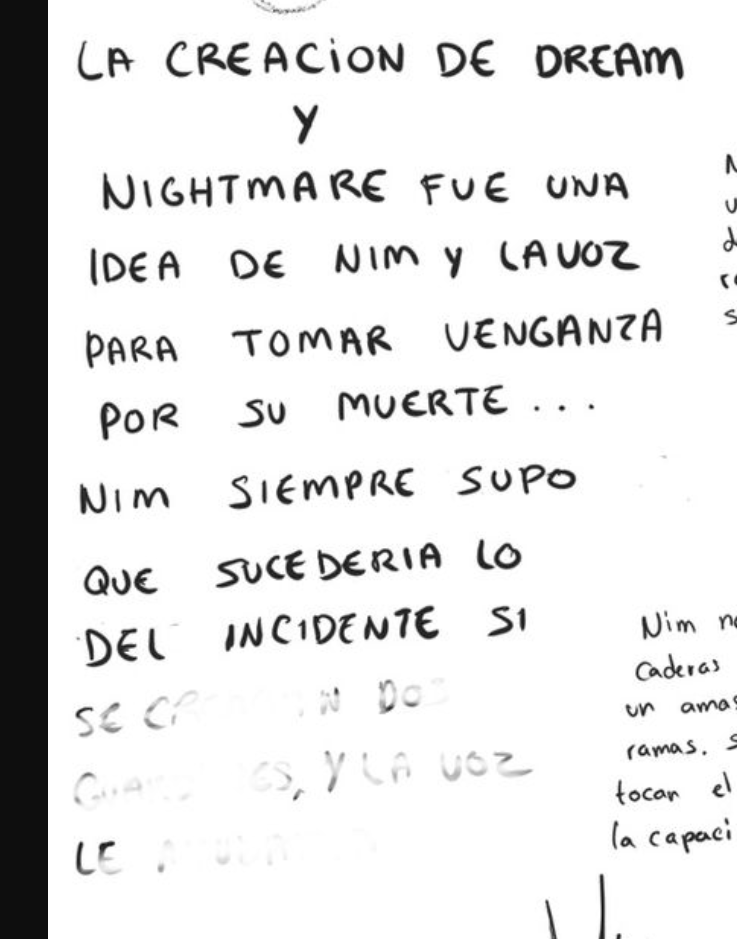 LA CREACION DE DREAM
Y
NIGHTMARE FUE UNA
IDEA DE NIM Y LA VOZ
PARA TOMAR VENGANZA
POR SU MUERTE...
NIM SIEMPRE SUPO
QUE SUCEDERIA LO
DEL INCIDENTE SI
SE DOS
, Y LA VOZ
LE
Nim
caderas
un
ramas.
tocar el
la